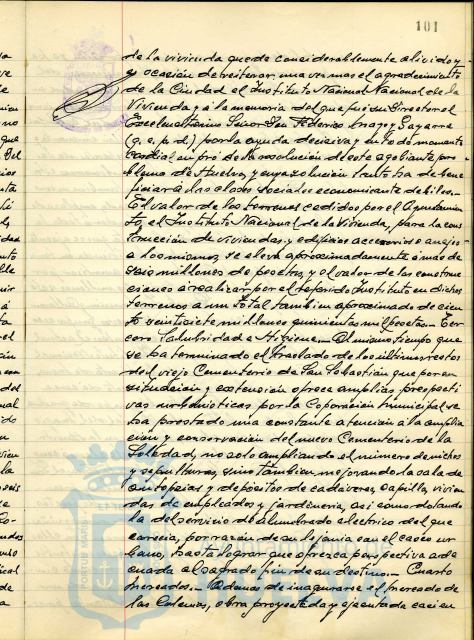 101
de la vivienda quede considerablemente aliviado y
y ocasión de reiterar, una vez mas el agradecimiento
de la Ciudad al Instituto Nacional Nacional de la
Vivienda y a la memoria del que fué su Director el
Excelentísimo Señor Don Federico Mayo y Gayarre
(q. e. p. d.) por la ayuda decisiva y en todo momento
cordial en pró de la resolución de este agobiante pro
blema de Huelva, y cuya solución tanto ha de bene
ficiar a las clases sociales economicamente debiles.-
El valor de los terrenos cedidos por el Ayuntamien
to, al Instituto Nacional de la Vivienda, para la cons
trucción de viviendas y edificios accesorios o anejos
a los mismos, se eleva aproximadamente a mas de
seis millones de pesetas, y el valor de las construc
ciones a realizar por el referido Instituto en dichos
terrenos a un total tambien aproximado de cien
to veintisiete millones quinientas mil pesetas.- Ter
cero Salubridad e Higiene.- Al mismo tiempo que
se ha terminado el traslado de los ultimos restos
del viejo Cementerio de San Sebastián que por su
situación y extensión ofrece amplias perspecti
vas urbanisticas por la Coporación municipal se
ha prestado una constante atención a la amplia
ción y conservación del nuevo Cementerio de la
Soledad, no solo ampliando el número de nichos
y sepulturas, sino tambien mejorando la sala de
autopsias y depósitos de cadáveres, capilla, vivien
das de empleados y jardineria, asi como dotando
la del servicio de alumbrado electrico del que
carecia, por razón de su lejania con el casco ur
bano, hasta lograr que ofrezca perspectiva ade
cuada al sagrado fin de su destino.- Cuarto
Mercados.- Ademas de inagurarse el Mercado de
las Colonias, obra proyectada y ejecutada casi en